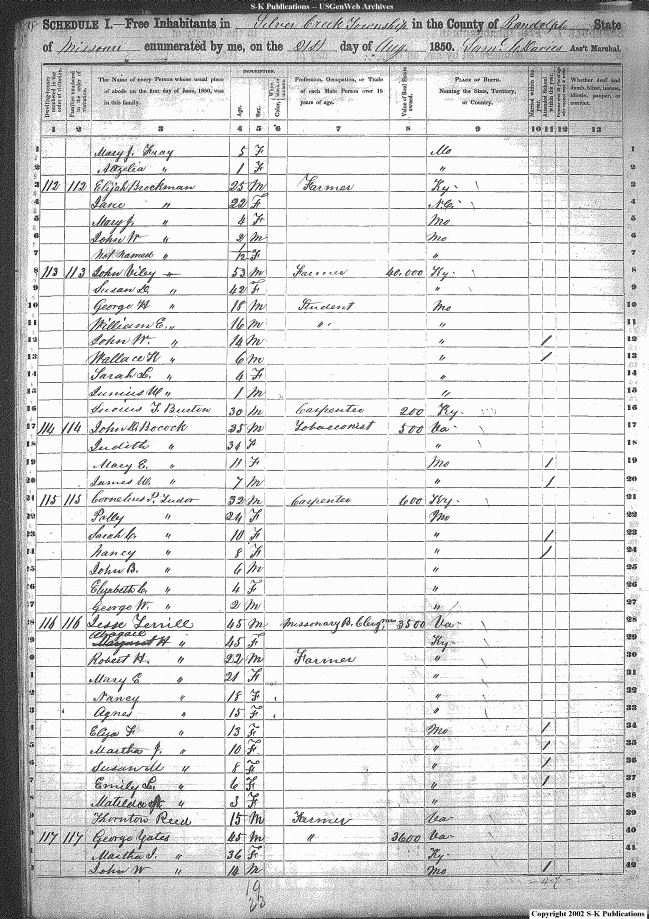 S-K Publications -- USGenWeb Archives
SCHEDULE I.—Free Inhabitants in Silver Creek Township in the County of Randolph State
of Missouri enumerated by me, on the 21st day of Aug. 1850. Ass't Marshal.
Dwelling-houses numbered in the order of visitation.
Families numbered in the order of visitation.
The Name of every Person whose usual place of abode on the first day of June, 1850, was in this family.
DESCRIPTION.
Age.
Sex.
Color,
Profession, Occupation, or Trade of each Male Person over 15 years of age.
Value of Real Estate owned.
PLACE OF BIRTH. Naming the State, Territory, or Country.
Married within the year.
Attended School within the year.
Whether deaf and dumb, blind, insane, idiotic, pauper, or convict.
1 2 3 4 5 6 7 8 9 10 11 12 13
1 Mary J. 5 F Mo 1
2 " 1 F " 2
3 112 112 Elijah Brockman 25 M Farmer Ky 3
4 Jane " 22 F N.C. 4
5 Mary J. " 4 F Mo 5
6 John W " 2 M Mo 6
7 Not named " 1/12 F " 7
8 113 113 John Viley " 53 M Farmer 40.000 Ky 8
9 Susan D. " 42 F " 9
10 George H " 18 M Student Mo 10
11 William E. " 16 M " " 11
12 John W. " 14 M " 1 12
13 Wallace K " 6 M " 1 13
14 Sarah L. " 4 F " 14
15 Junius M " 1 M " 15
16 F. Burton 30 M Carpenter 200 Ky 16
17 114 114 John Bocock 35 M Tobacconist 500 Va 17
18 Judith " 34 F " 18
19 Mary C. " 11 F Mo 1 19
20 James W. " 7 M " 1 20
21 115 115 Cornelius P. Tudor 32 M Carpenter 600 Ky 21
22 Polly " 24 F Mo 22
23 Sarah C. " 10 F " 1 23
24 Nancy " 8 F " 1 24
25 John B. " 6 M " 25
26 Elizabeth C. " 4 F " 26
27 George W. " 2 M " 27
28 116 116 Jesse Terrill 45 M Missionary B. Clergyman 3500 Va 28
Abagail
29 Margaret H " 45 F Ky 29
30 Robert H. " 22 M Farmer " 30
Mary E " 21 F "
Nancy " 18 F " 32
Agnes " 15 F " 33
Eliza F " 13 F Mo 1 34
Martha J. " 10 F " 1 35
Susan M " 8 F " 1 36
Emily L. " 6 F " 1 37
Matilda " 3 F " 38
Thornton Reed 15 M Farmer Va 39
117 117 George Yates 45 M " 3600 Va 40
Martha " 36 F Ky 41
John W " 14 M Mo 1 42
19
23
Copyright 2002 S-K Publications